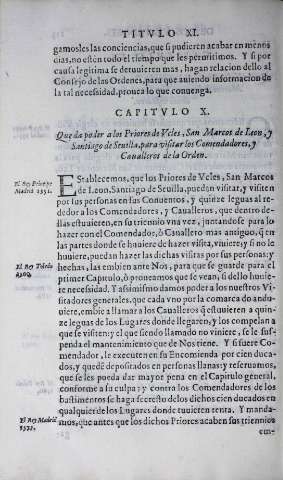 TITVLO XI.
gamosles las conciencias, que si pudieren acabar en menos
dias, no estèn todo el tiempo que les permitimos. Y si por
causa legitima se detuuieren mas, hagan relacion dello al
Consejo de las Ordenes, para que auiendo informacion de
la tal necessidad, prouea lo que conuenga.
CAPITVLO X.
Que da poder a los Priores de Vcles, San Marcos de Leon, y
Santiago de Seuilla, para visitar los Comendadores, y
Caualleros de la Orden.
El Rey Principe
Madrid 1551.
EStablecemos, que los Priores de Vcles, San Marcos
de Leon, Santiago de Seuilla, puedan visitar, y visiten
por sus personas en sus Conuentos, y quinze leguas al re-
dedor a los Comendadores, y Caualleros, que dentro de-
llas estuuieren, en su triennio vna vez, juntandose para lo
hazer con el Comendador, ò Cauallero mas antiguo, q̃ en
las partes donde se huuiere de hazer visita, viuiere; y si no le
huuiere, puedan hazer las dichas visitas por sus personas: y
El Rey Toledo
1560.
hechas, las embien ante Nos, para que se guarde para el
primer Capitulo, ò proueamos que se vean, si dello huuie-
re necessidad. Y assimismo damos poder a los nuestros Vi-
sitadores generales, que cada vno por la comarca do andu-
uiere, embie a llamar a los Caualleros q̃ estuuieren a quin-
ze leguas de los Lugares donde llegaren, y los compelan a
que se visiten; y el que siendo llamado no viniere, se le sus-
penda el mantenimiento que de Nos tiene. Y si fuere Co-
mendador, le executen en su Encomienda por cien duca-
dos, y quedẽ depositados en personas llanas; y reseruamos,
que se les pueda dar mayor pena en el Capitulo general,
conforme a su culpa: y contra los Comendadores de los
bastimentos se haga secresto de los dichos cien ducados en
qualquier de los Lugares donde tuuieren renta. Y manda-
El Rey Madrid
1573.
mos, que antes que los dichos Priores acaben sus triennios
em-